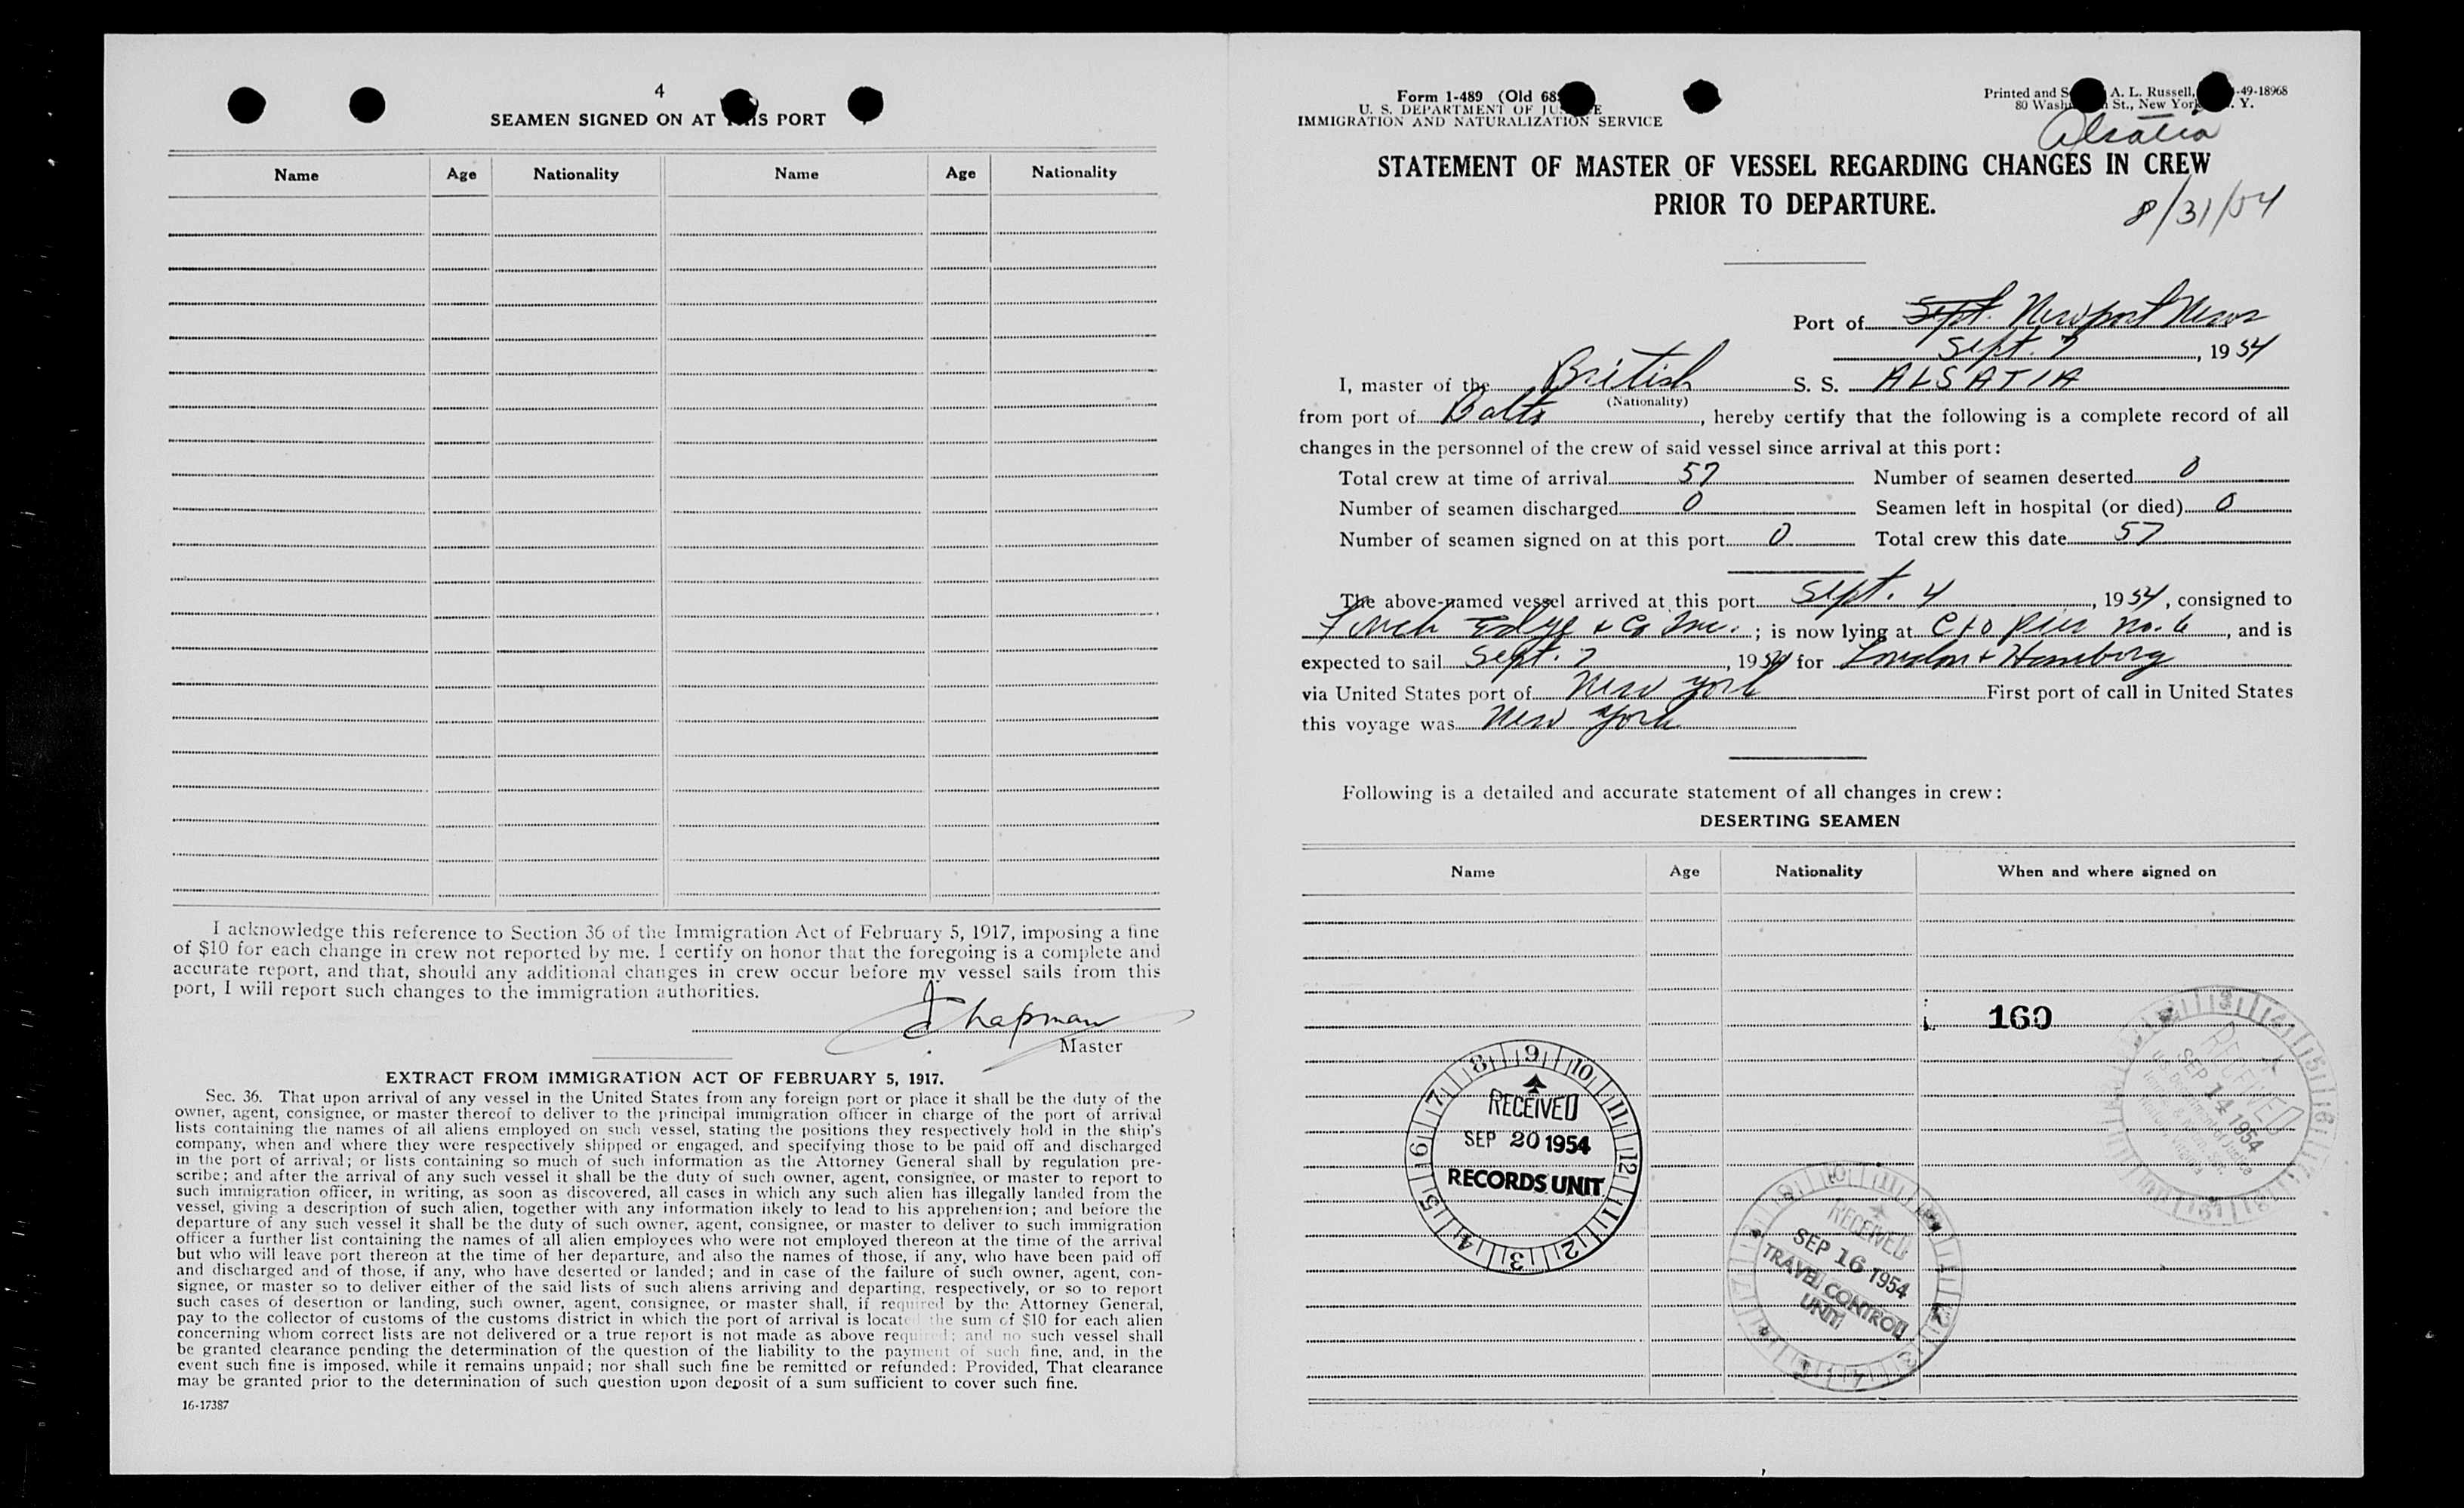 4
SEAMEN SIGNED ON AT THIS PORT
Name Age Nationality Name Age Nationality
I acknowledge this reference to Section 36 of the Immigration Act of February 5, 1917, imposing a fine
of $10 for each change in crew not reported by me. I certify on honor that the foregoing is a complete and
accurate report, and that, should any additional changes in crew occur before my vessel sails from this
port, I will report such changes to the immigration authorities.
Chapman
Master
EXTRACT FROM IMMIGRATION ACT OF FEBRUARY 5, 1917.
Sec. 36. That upon arrival of any vessel in the United States from any foreign port or place it shall be the duty of the
owner, agent, consignee, or master thereof to deliver to the principal immigration officer in charge of the port of arrival
lists containing the names of all aliens employed on such vessel, stating the positions they respectively hold in the ship's
company, when and where they were respectively shipped or engaged, and specifying those to be paid off and discharged
in the port of arrival; or lists containing so much of such information as the Attorney General shall by regulation pre-
scribe; and after the arrival of any such vessel it shall be the duty of such owner, agent, consignee, or master to report to
such immigration officer, in writing, as soon as discovered, all cases in which any such alien has illegally landed from the
vessel, giving a description of such alien, together with any information likely to lead to his apprehension; and before the
departure of any such vessel it shall be the duty of such owner, agent, consignee, or master to deliver to such immigration
officer a further list containing the names of all alien employees who were not employed thereon at the time of the arrival
but who will leave port thereon at the time of her departure, and also the names of those, if any, who have been paid off
and discharged and of those, if any, who have deserted or landed; and in case of the failure of such owner, agent, con-
signee, or master so to deliver either of the said lists of such aliens arriving and departing, respectively, or so to report
such cases of desertion or landing, such owner, agent, consignee, or master shall, if required by the Attorney General,
pay to the collector of customs of the customs district in which the port of arrival is located the sum of $10 for each alien
concerning whom correct lists are not delivered or a true report is not made as above required; and no such vessel shall
be granted clearance pending the determination of the question of the liability to the payment of such fine, and, in the
event such fine is imposed, while it remains unpaid; nor shall such fine be remitted or refunded: Provided, That clearance
may be granted prior to the determination of such question upon deposit of a sum sufficient to cover such fine.
16-17387
Form 1-489 (Old 68
U. S. DEPARTMENT OF JUSTICE
IMMIGRATION AND NATURALIZATION SERVICE
Printed and S A. L. Russell, -49-18968
80 Wash St., New York, N. Y.
Alsatia
STATEMENT OF MASTER OF VESSEL REGARDING CHANGES IN CREW
PRIOR TO DEPARTURE.
8/31/54
Port of Sept. Newport News
Sept. 7, 1954
I, master of the British S. S. ALSATIA
(Nationality)
from port of Balto, hereby certify that the following is a complete record of all
changes in the personnel of the crew of said vessel since arrival at this port:
Total crew at time of arrival 57 Number of seamen deserted 0
Number of seamen discharged 0 Seamen left in hospital (or died) 0
Number of seamen signed on at this port 0 Total crew this date 57
The above-named vessel arrived at this port Sept. 4, 1954, consigned to
Funch Edye & Co Inc.; is now lying at C+O Pier No. 6, and is
expected to sail Sept. 7, 1954 for London + Hamburg
via United States port of New York First port of call in United States
this voyage was New York
Following is a detailed and accurate statement of all changes in crew:
DESERTING SEAMEN
Name Age Nationality When and where signed on
160
RECEIVED
SEP 14 1954
U.S. Department of Justice
RECEIVED
SEP 20 1954
RECORDS UNIT
RECEIVED
SEP 16 1954
TRAVEL CONTROL
UNIT